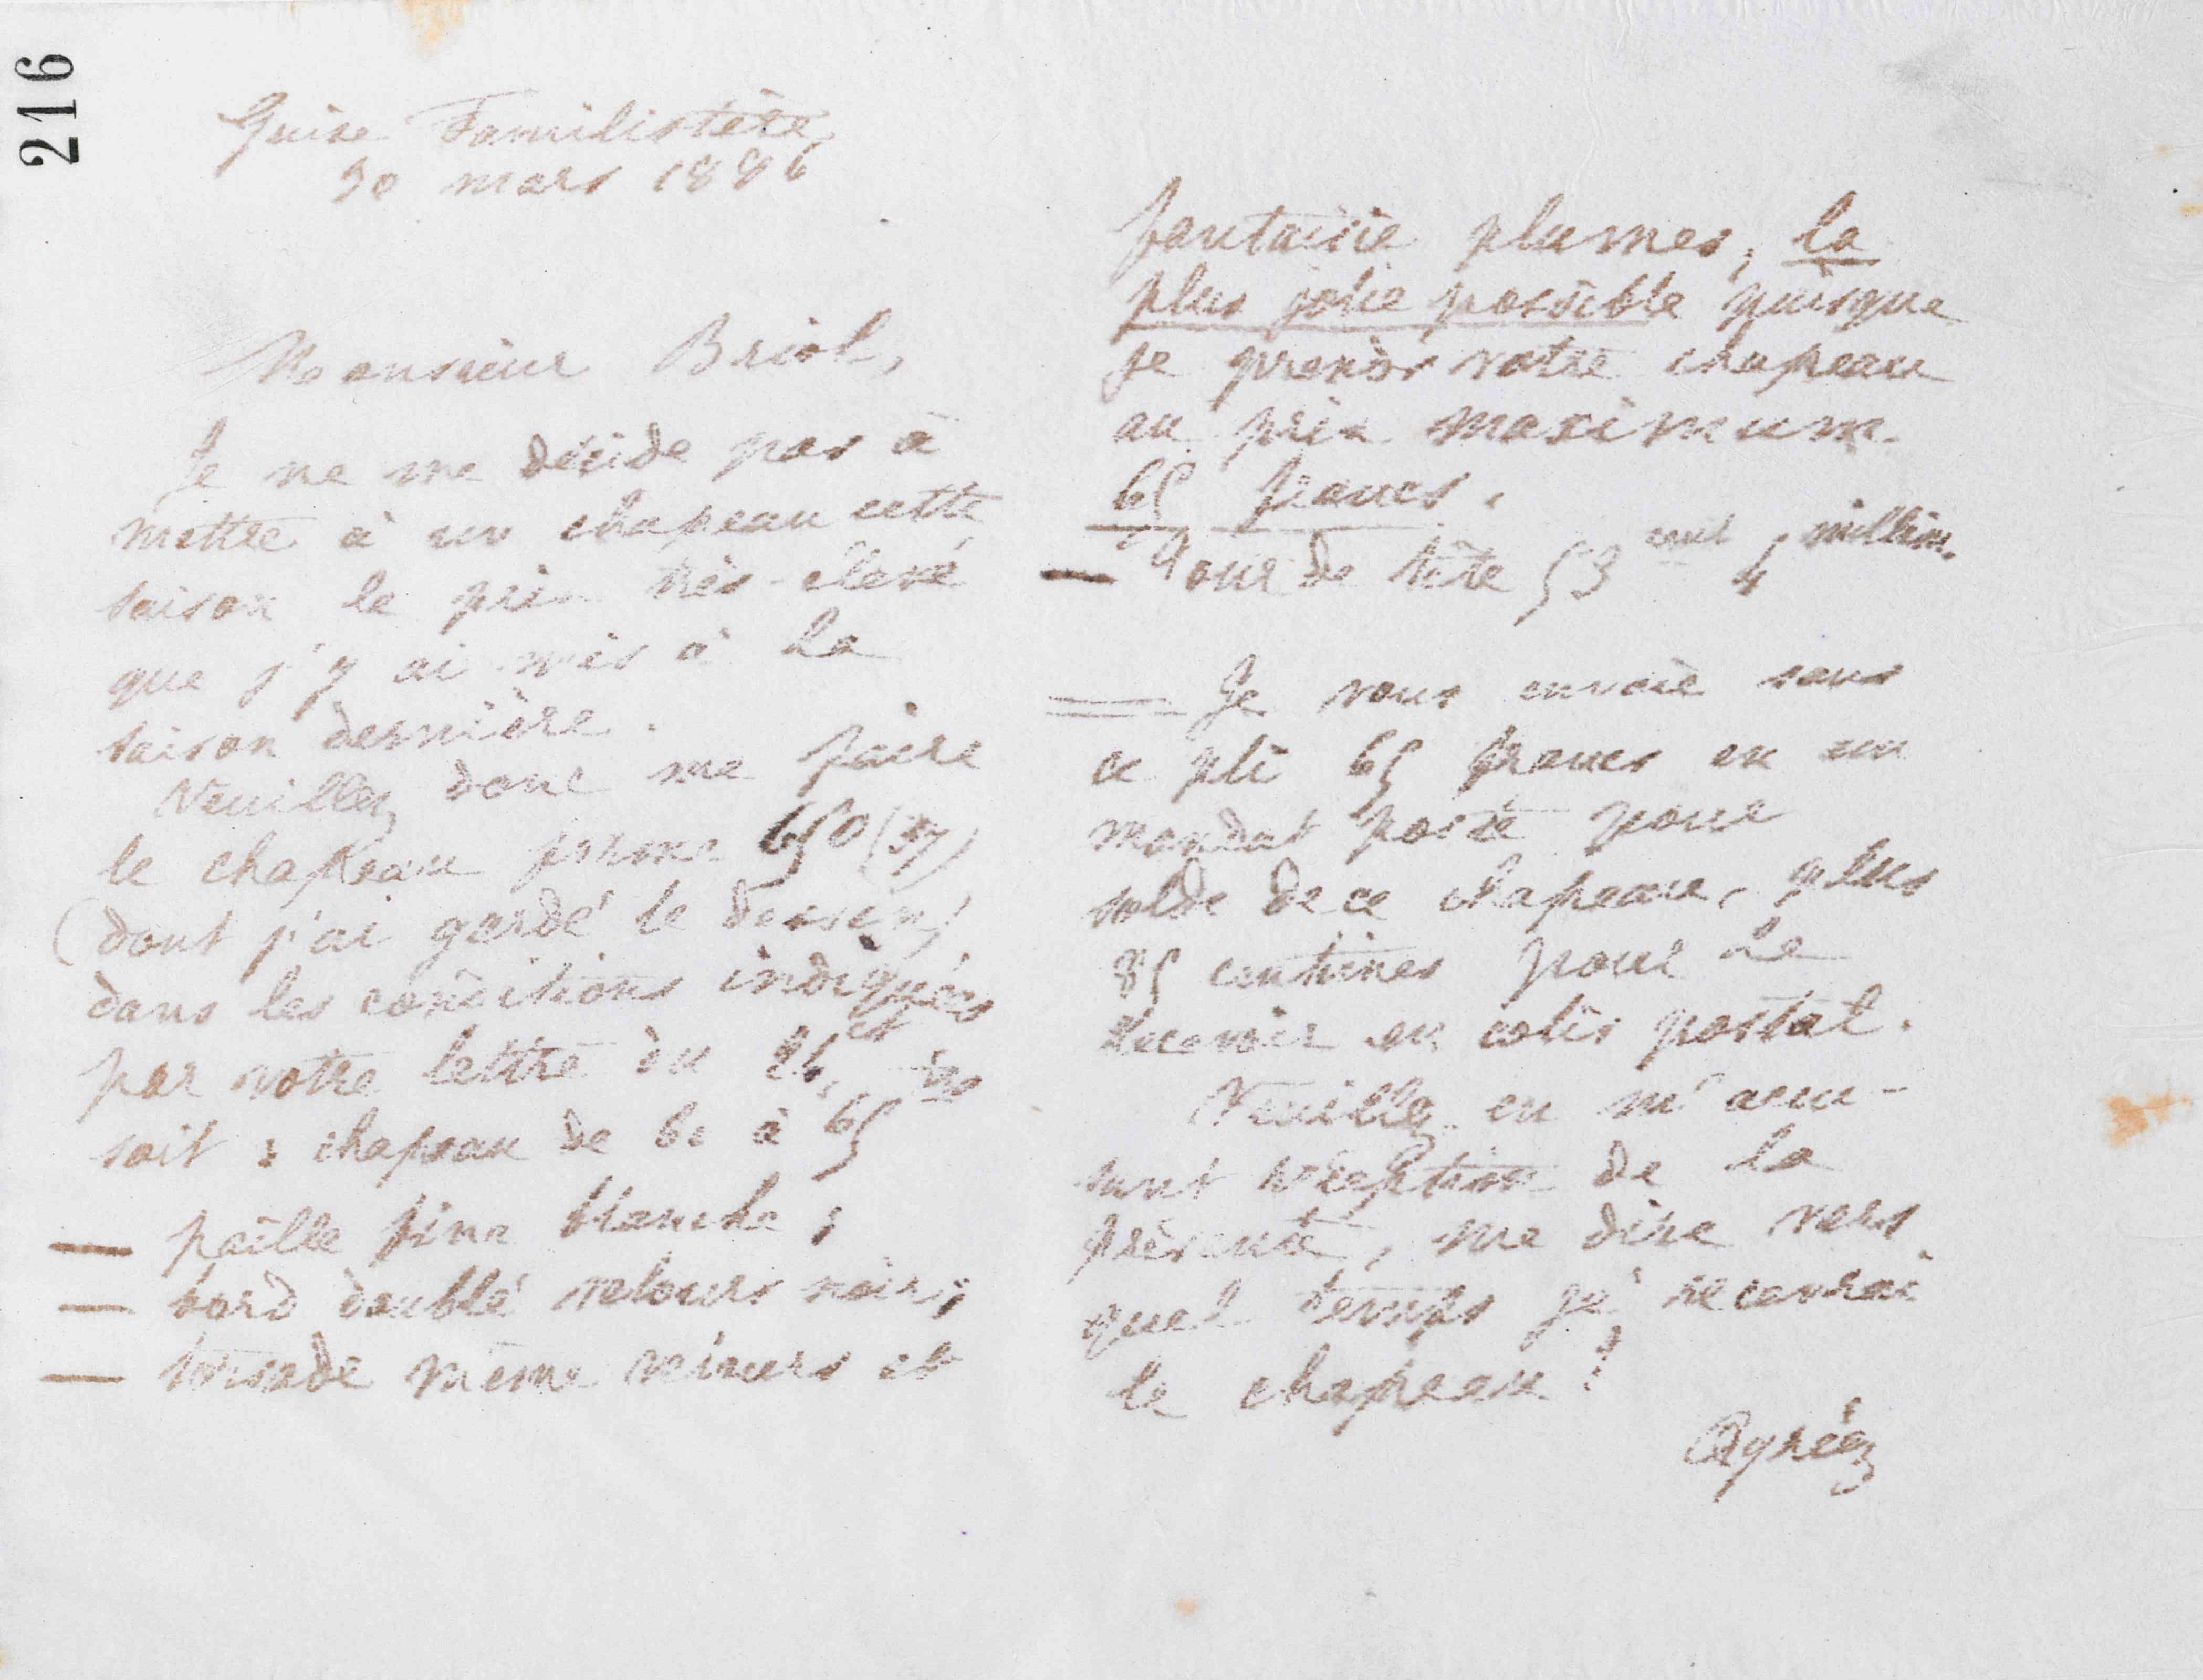 216
Guise Familistère
30 mars 1886
Monsieur Briol,
Je ne me décide pas à
mettre à un chapeau cette
saison le prix très-élevé
que j'y ai mis à la
saison dernière.
Veuillez donc me faire
le chapeau forme 650 (37)
(dont j'ai gardé le dessin)
dans les conditions indiquées
par votre lettre du 26,
soit : chapeau de 60 à 65
— paille fine blanche ;
— bord doublé velours noir ;
— torsade même velours et
fantaisie plumes, la
plus jolie possible puisque
je prends votre chapeau
au prix maximum
65 francs.
— Tour de tête 53 cent 4 millim.
Je vous envoie sous
ce pli 65 francs en un
mandat poste pour
solde de ce chapeau, plus
85 centimes pour le
recevoir en colis postal.
Veuillez en m'accu-
sant réception de la
présente, me dire vers
quel temps je recevrai
le chapeau ?
Agréez